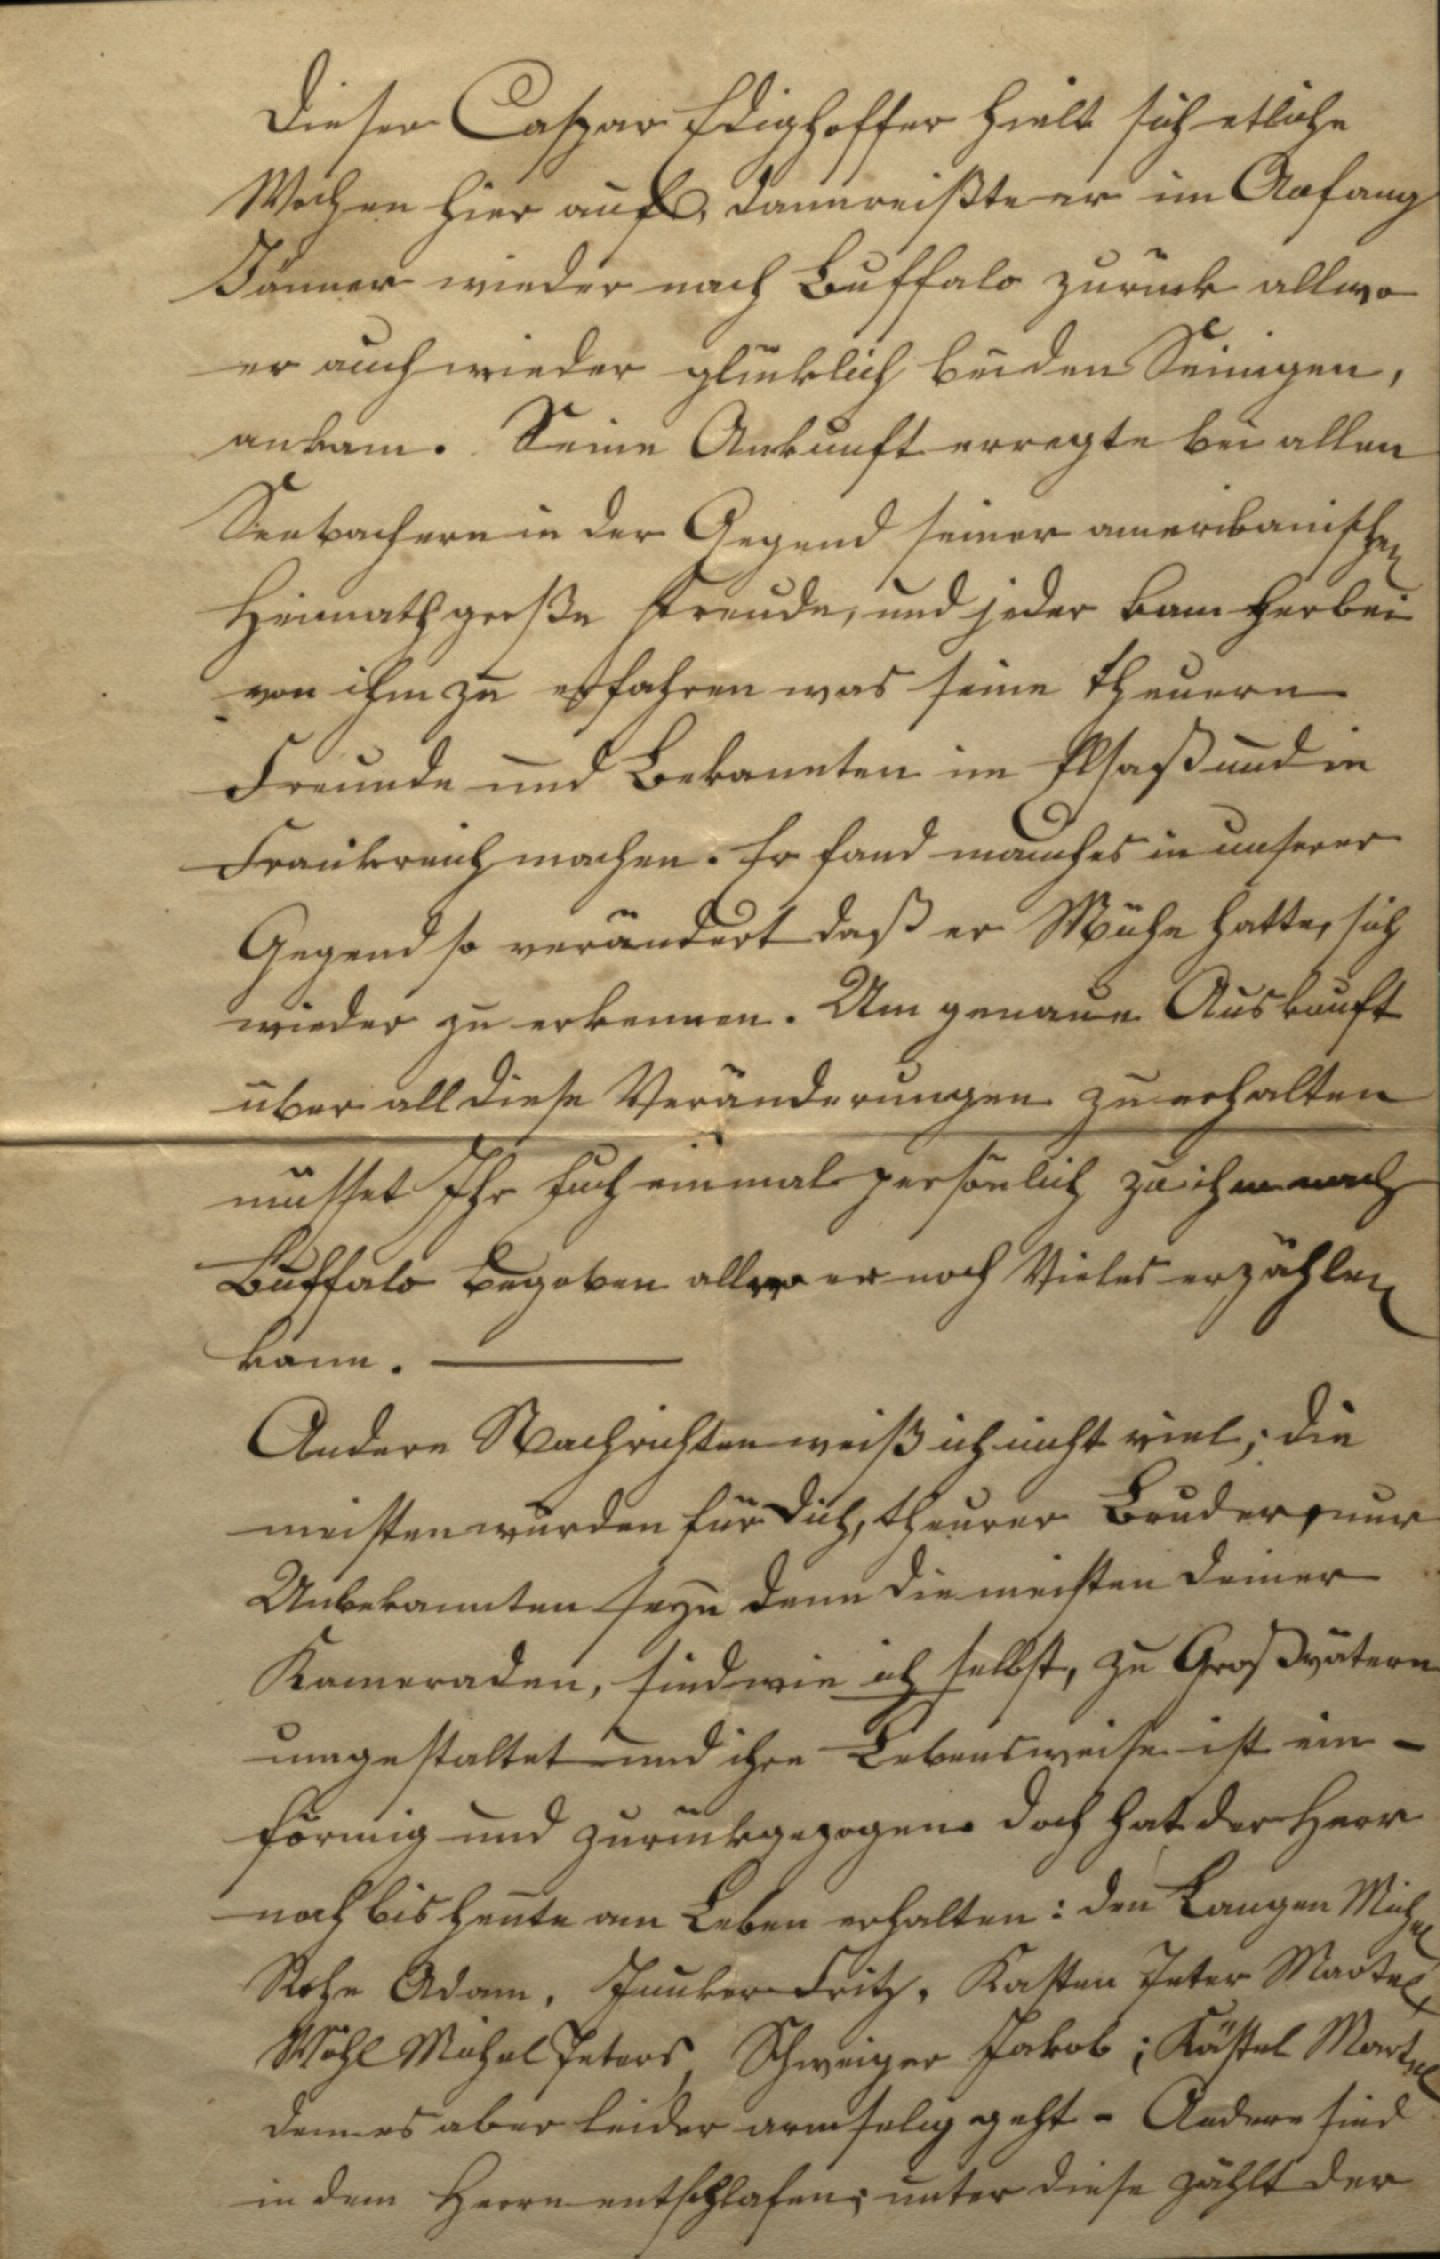 Dieser Caspar Edighoffer hielt sich etliche
Wochen hier auf, dann reißte er im Anfang
Jänner wieder nach Buffalo zurück allwo
er auch wieder glücklich bei den Seinigen,
ankam. Seine Ankunft erregte bei allen
Seebachern in der Gegend seiner amerikanischen
Heimath große Freude, und jeder kam herbei
von ihm zu erfahren was seine theuern
Freunde und Bekannten im Elsaß und in
Frankreich machen. Er fand manches in unserer
Gegend so verändert daß er Mühe hatte, sich
wieder zu erkennen. Um genaue Auskunft
über all diese Veränderungen zu erhalten
müsset Ihr Euch einmal persönlich zu ihm nach
Buffalo begeben allwo er noch Vieles erzählen
kann. —
Andere Nachrichten weiß ich nicht viel; die
meisten würden für Dich, theurer Bruder, nur
Unbekannten seyn denn die meisten Deiner
Kameraden, sind wie ich selbst, zu Großvätern
umgestaltet und ihre Lebensweise ist ein-
förmig und zurückgezogen. Doch hat der Herr
noch bis heute am Leben erhalten: den Langen Michel
Rohe Adam, Junker Fritz, Kasten Peter Martel,
Wohl Michel Peters, Schweiger Jakob; Kästel Martel
dem es aber leider armselig geht - Andere sind
in dem Herrn entschlafen; unter diese zählt der